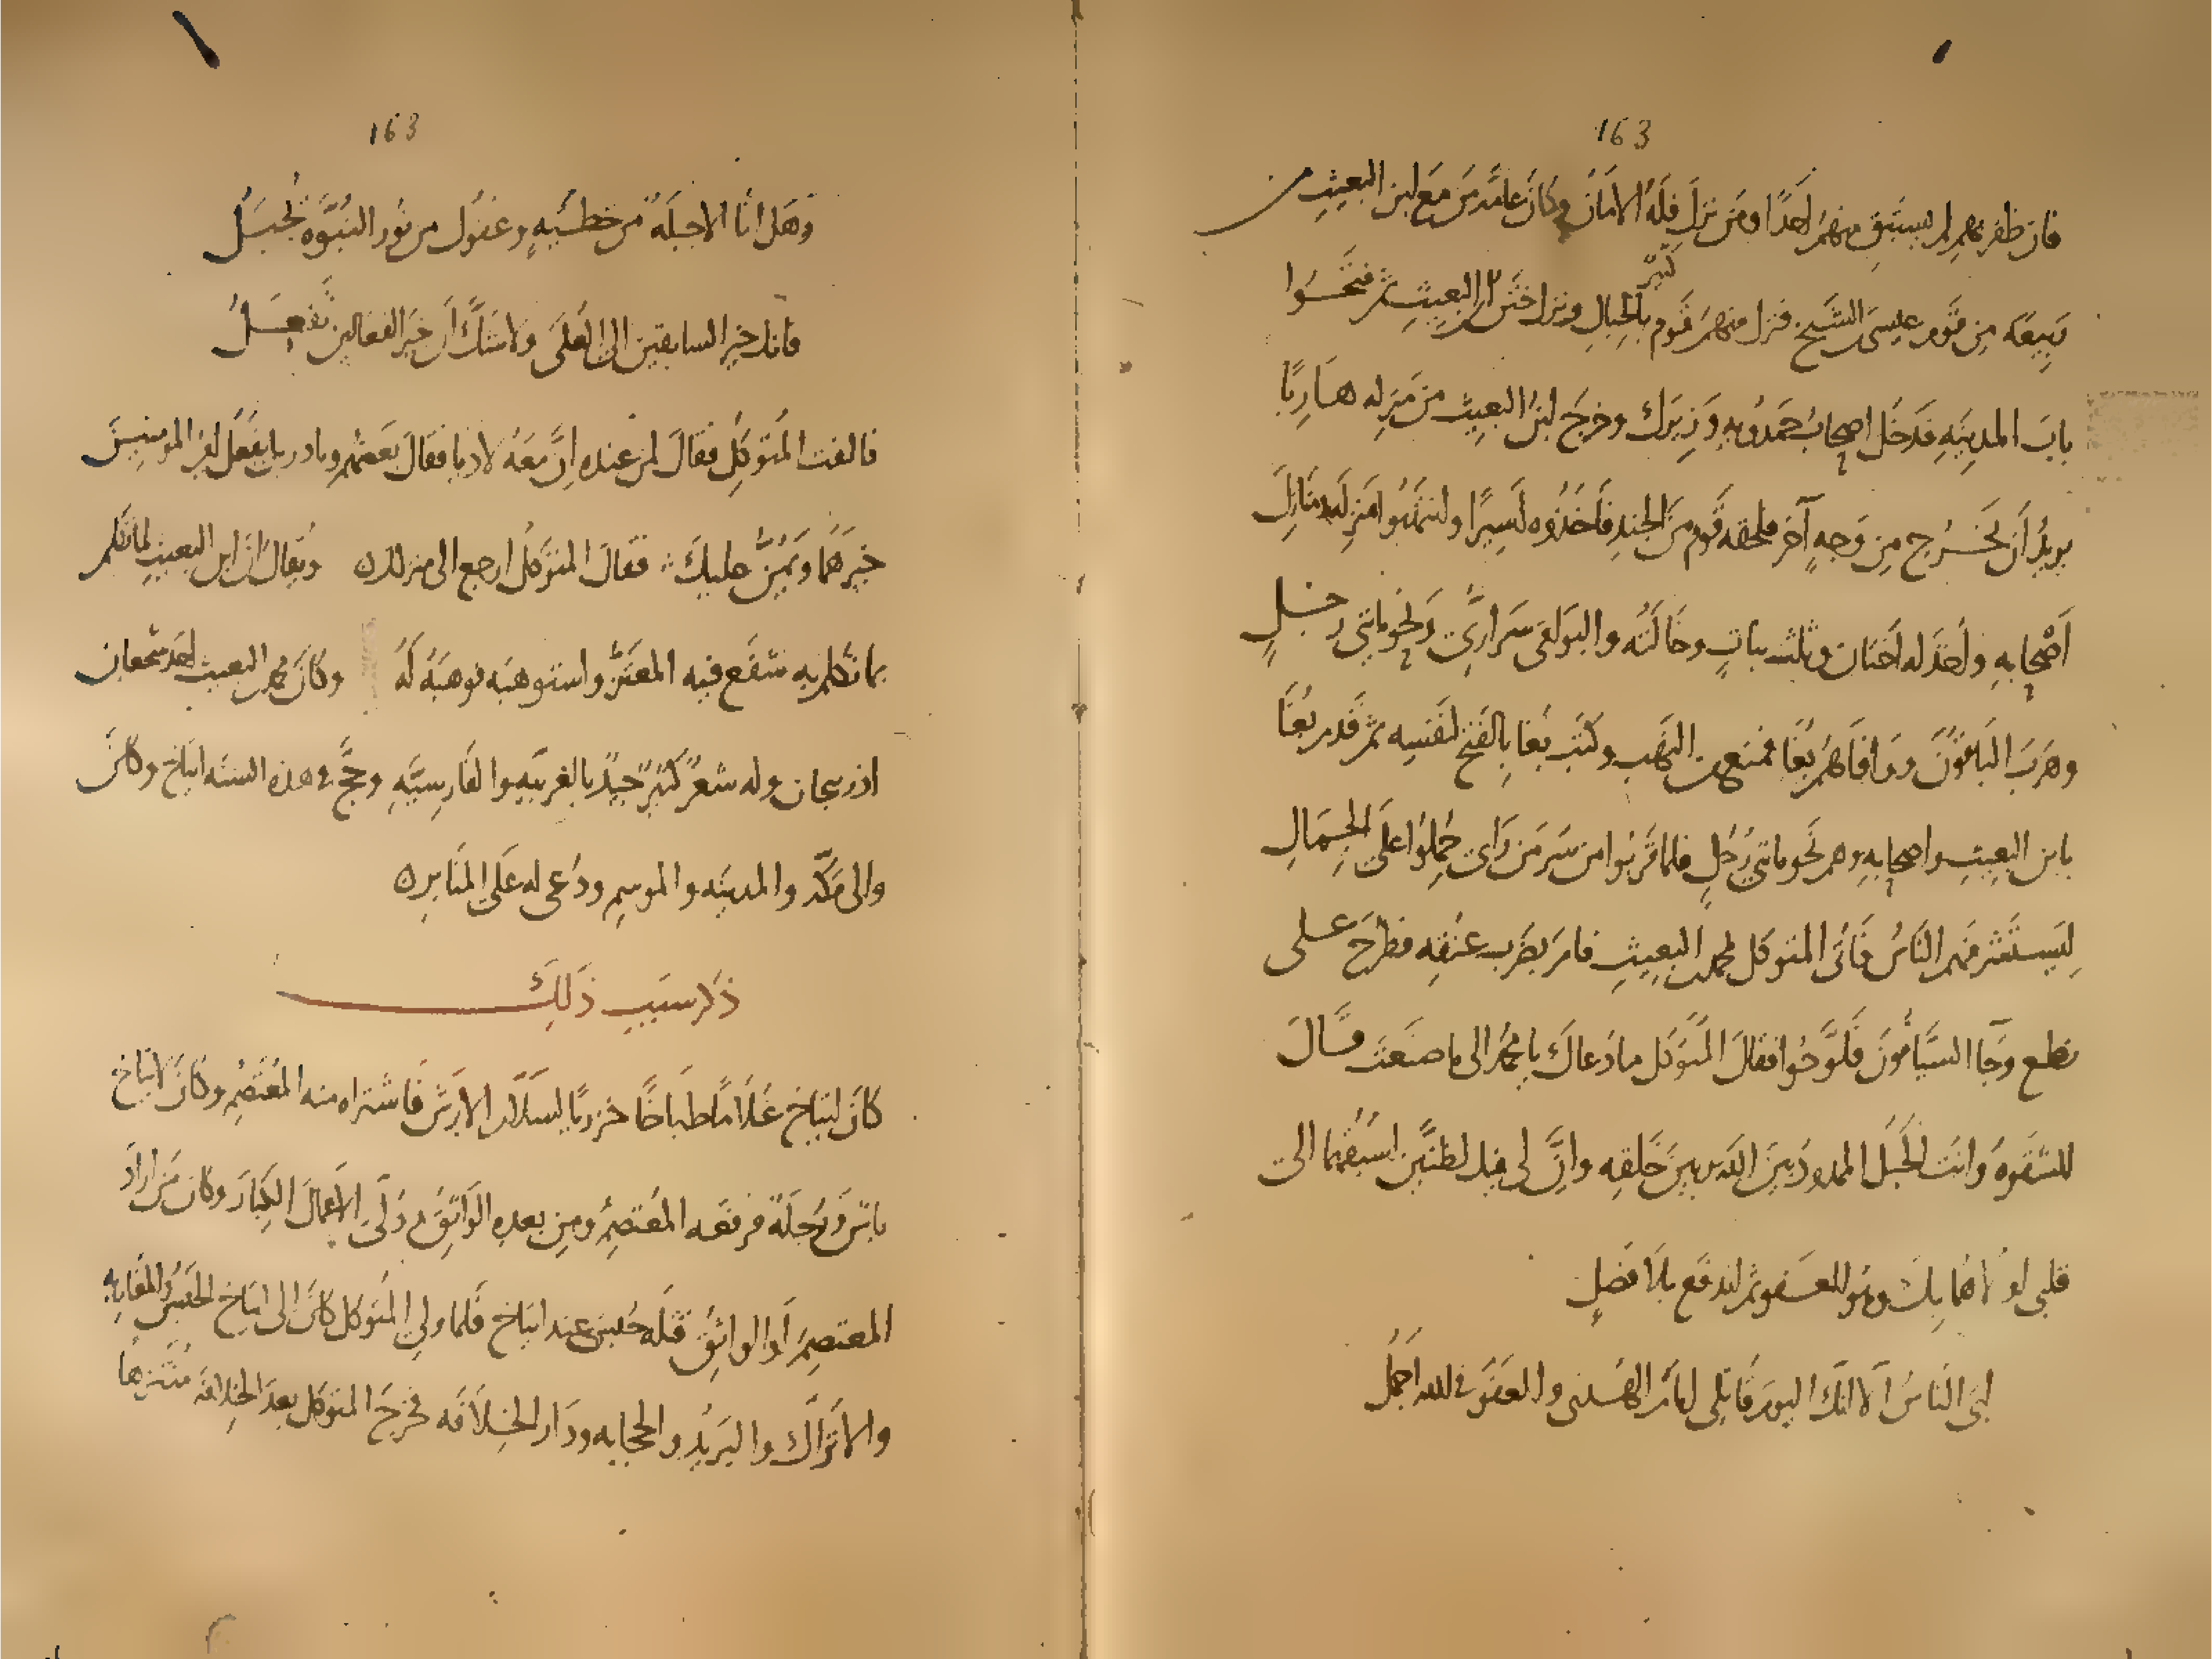 163
فان ظفر بهم لم يستبق منهم احدًا ومن نزل فله الامان وكان عامّة من مع ابن البعيث من
ربيعة من قوم عيسى بن الشيخ فنزل منهم قوم كثير بالحبال ونزل ختن ابن البعيث ثم فتحوا
باب المدينه فدخل اصحاب حمدويه وزيرك وخرج ابن البعيث من منزله هاربًا
يريد أن يخرج من وجهٍ آخر فلحقه قوم من الجند فأخذوه أسيرًا وانتهبوا منزله ومنازل
أصحابه وأخذ له اختان وثلث بنات وخالته والبواقى سرارى ونحو مائتى رجلٍ
وهرب الباقون ووافاهم بغا فمنع من النهب وكتب بغا بالفتح لنفسه ثم قدم بغا
بابن البعيث واصحابه وهم نحو مائتى رجلٍ فلما قربوا من سر من رأى حملوا على الجمال
ليستشرفهم الناس فأتى المتوكل بمحمد بن البعيث فامر بضرب عنقه فطرح على
نطع وجا السيّافون فلوّحوا فقال المتوكل ما دعاك يا محمد الى ما صنعت قال
الشقوة وانت الحبل الممدود بين الله وبين خلقه وانّ لى فيك لظنّين اسبقهما الى
قلبى اولاهما بك وهو العفو ثم اندفع بلا فصلٍ
ابى الناس الا انك اليوم قاتلى امام الهدى والعفو فى الله اجمل
163
وهل انا الا جبلة من خطيّةٍ وعفوك من نور النبوّة يجبل
فانك خير السابقين الى العلى ولا شكّ أن خير الفعالين تفعل
فالتفت المتوكل فقال لمن عنده إنّ معه لادبا فقال بعضهم وبادر بل يفعل امير المومنين
خيرهما ويمنّ عليك فقال المتوكل ارجع الى منزلك ويقال ان ابن البعيث لما تكلم
بما تكلم به شفع فيه المعتز واستوهبه فوهبه له وكان محمد بن البعيث احد شجعان
اذربيجان وله شعر كثير جيد بالعربيه والفارسيّه وحجّ فى هذه السنه ايتاخ وكان
والى مكّه والمدينه والموسم ودعى له على المنابر
ذكر سبب ذلك
كان ايتاخ غلامًا طباخًا خزريًا لسلام الابرش فاشتراه منه المعتصم وكان لايتاخ
باس ورجلة فرفعه المعتصم ومن بعده الواثق وولى الاعمال الكبار وكان من اراد
المعتصم أو الواثق قتله حبس عند ايتاخ فلما ولى المتوكل كان الى ايتاخ الجيش والمغاربه
والاتراك والبريد والحجابه ودار الخلافه فخرج المتوكل بعد الخلافه متنزها